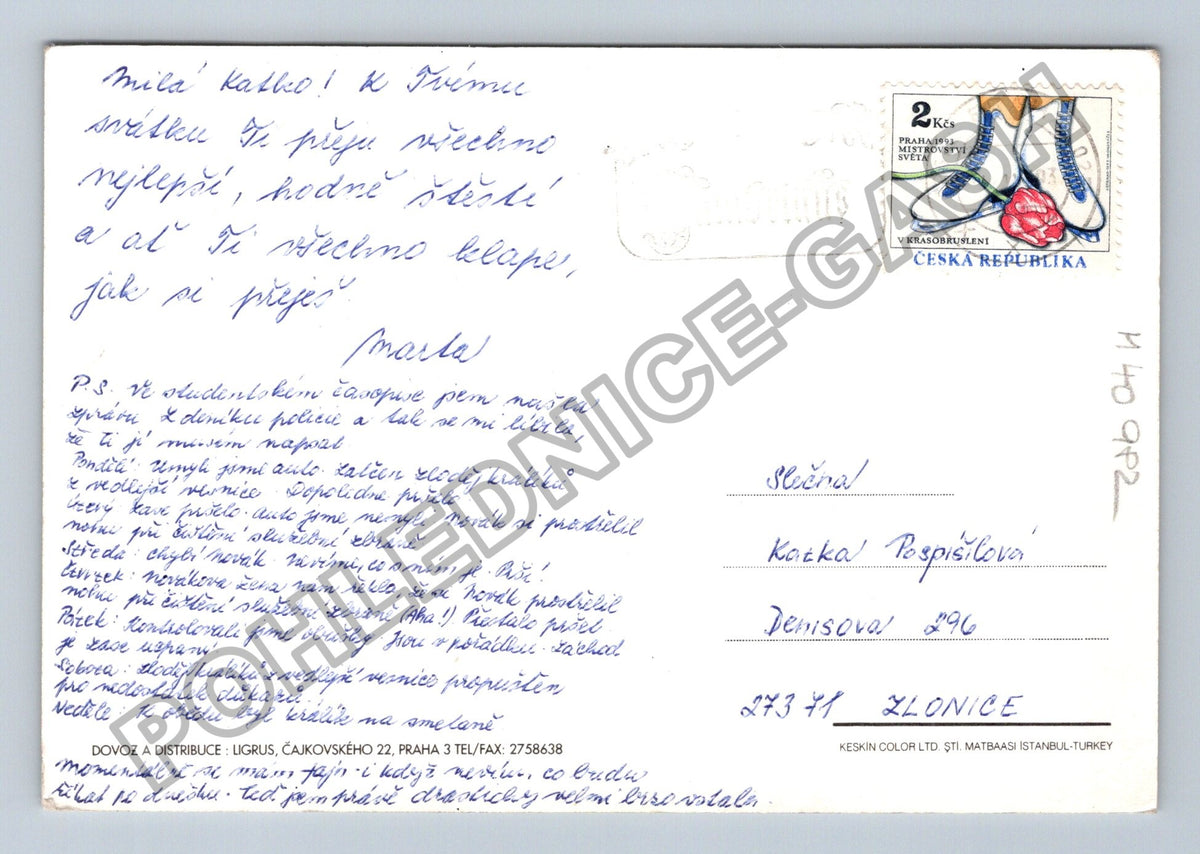 Milá Katko! K Tvému
svátku Ti přeju všechno
nejlepší, hodně štěstí
a ať Ti všechno klape,
jak si přeješ.
Marta
P.S. Ve studentském časopise jsem našla
zprávu z deníku policie a tak se mi líbila,
že ti ji musím napsat
Pondělí: Umyli jsme auto. Zatčen zloděj králíků
z vedlejší vesnice. Dopoledne pršelo.
Úterý: Zase pršelo. auto jsme nemyli. Novák si prostřelil
nohu při čištění služební zbraně
Středa: chybí Novák. nevíme, co s ním je. Prší!
Čtvrtek: Novákova žena nám řekla, že si Novák prostřelil
nohu při čištění služební zbraně (Aha!) Přestalo pršet.
Pátek: Kontrolovali jsme obušky. Jsou v pořádku. Záchod
je zase ucpaný.
Sobota: Zloděj králíků z vedlejší vesnice propuštěn
pro nedostatek důkazů.
Neděle: K obědu byl králík na smetaně.
DOVOZ A DISTRIBUCE : LIGRUS, ČAJKOVSKÉHO 22, PRAHA 3 TEL/FAX: 2758638
Momentálně se mám fajn - i když nevím, co budu
říkat po dnešku. Teď jsem právě drasticky velmi brzo vstala.
2 Kčs
PRAHA 1993
MISTROVSTVÍ
SVĚTA
V KRASOBRUSLENÍ
ČESKÁ REPUBLIKA
Slečna
Katka Pospíšilová
Denisova 296
273 71 ZLONICE
KESKİN COLOR LTD. ŞTİ. MATBAASI İSTANBUL-TURKEY
POHLEDNICE-GASH